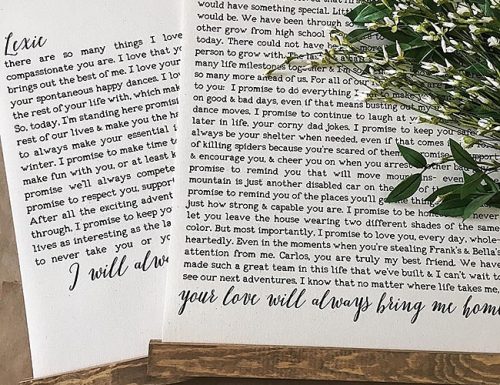 Lexie
there are so many things I love
compassionate you are. I love that yo
brings out the best of me. I love your
your spontaneous happy dances. I lov
the rest of your life with, which mak
So, today, I'm standing here promisi
rest of our lives & make you the ha
to always make your essential
winter. I promise to make time t
make fun with you, or at least k
promise we'll always compete
promise to respect you, suppor
After all the exciting adven
through, I promise to keep yo
lives as interesting as the la
to never take you or yo
I will alwa
would have something special. Littl
would be. We have been through so
other grow from high school
today. There could not have be
person to grow with
many life milestones tog & I'm
so many more ahead of us. For all of our
to you: I promise to do everything I make
on good & bad days, even if that means busting out my
dance moves. I promise to continue to laugh at y
later in life, your corny dad jokes. I promise to keep you safe
always be your shelter when needed, even if that comes i
of killing spiders because you're scared of them. I promise
& encourage you, & cheer you on when you arrest other ba
promise to remind you that will move mountains- even
mountain is just another disabled car on the side of t
promise to remind you of the places you'll go, the things
just how strong & capable you are. I promise to be hones never
let you leave the house wearing two different shades of the same
color. But most importantly, I promise to love you, every day, whole-
heartedly. Even in the moments when you're stealing Frank's & Bella's
attention from me. Carlos, you are truly my best friend. We have
made such a great team in this life that we've built & I can't wait to
see our next adventures. I know that no matter where life takes me,
your love will always bring me home